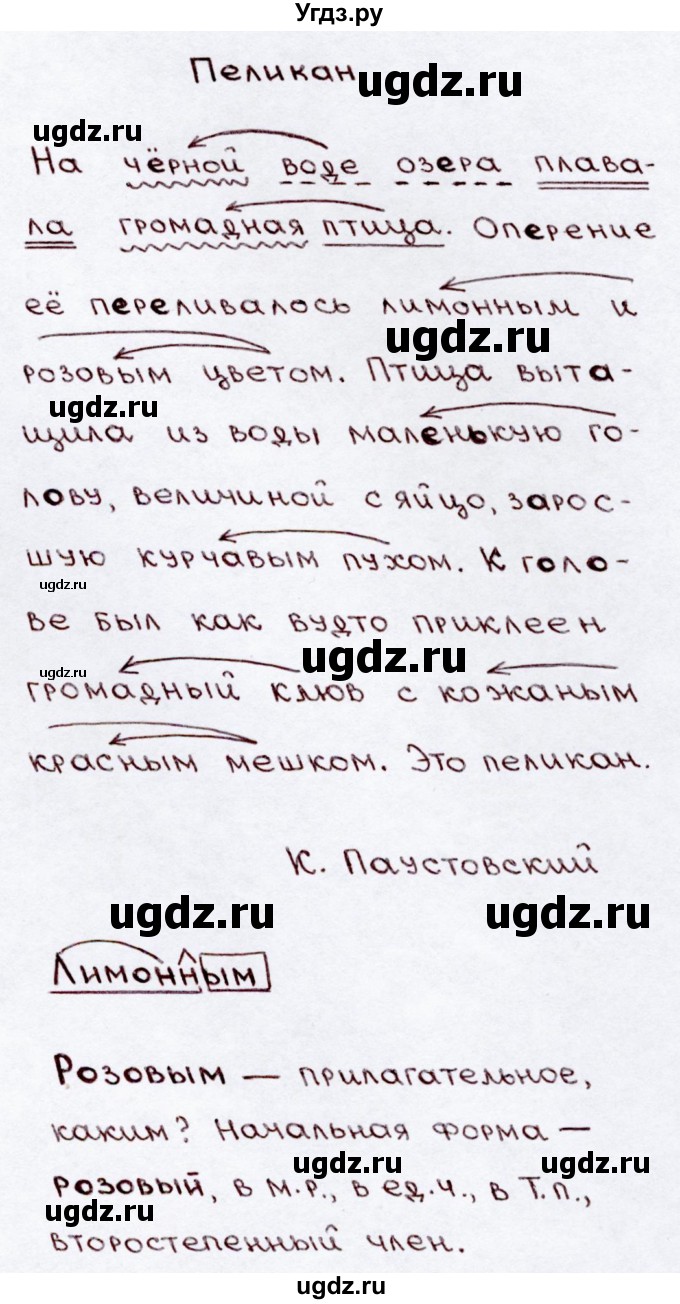 Угдз.ру
Пеликан
ugdz.ru
ugdz.ru
На чёрной воде озера плава-
ла громадная птица. Оперение
её переливалось лимонным и
ugdz.ru
розовым цветом. Птица выта-
ugdz.ru
щила из воды маленькую го-
лову, величиной с яйцо, зарос-
шую курчавым пухом. К голо-
ugdz.ru
ве был как будто приклеен
ugdz.ru
ugdz.ru
громадный клюв с кожаным
красным мешком. Это пеликан.
К. Паустовский
ugdz.ru
ugdz.ru
Лимонным
Розовым — прилагательное,
каким? Начальная форма —
ugdz.ru
ugdz.ru
розовый, в м.р., в ед.ч., в Т.п.,
ugdz.ru
второстепенный член.
ugdz.ru